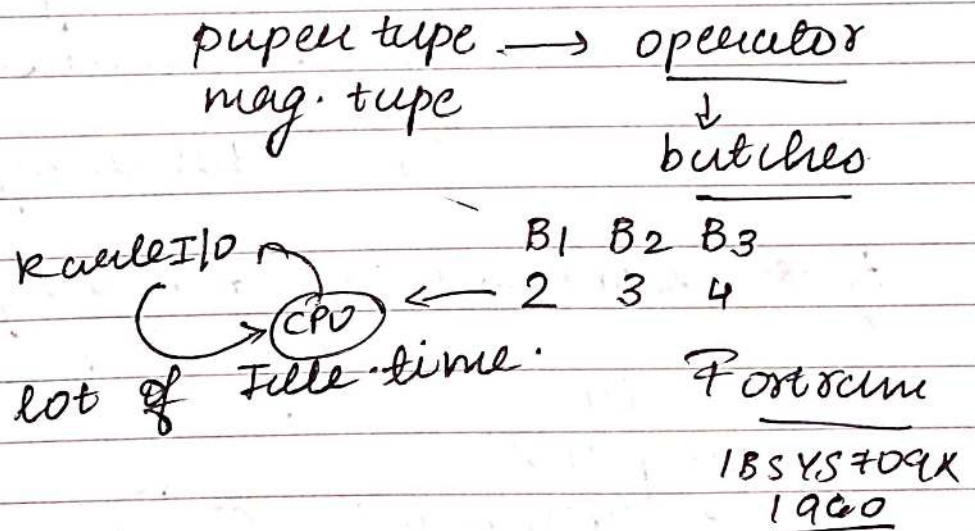 paper tape → operator
mag. tape
↓
batches
B1 B2 B3
2 3 4
I/O
CPU ←
lot of Idle time.
Fortran
IBSYS709X
1960